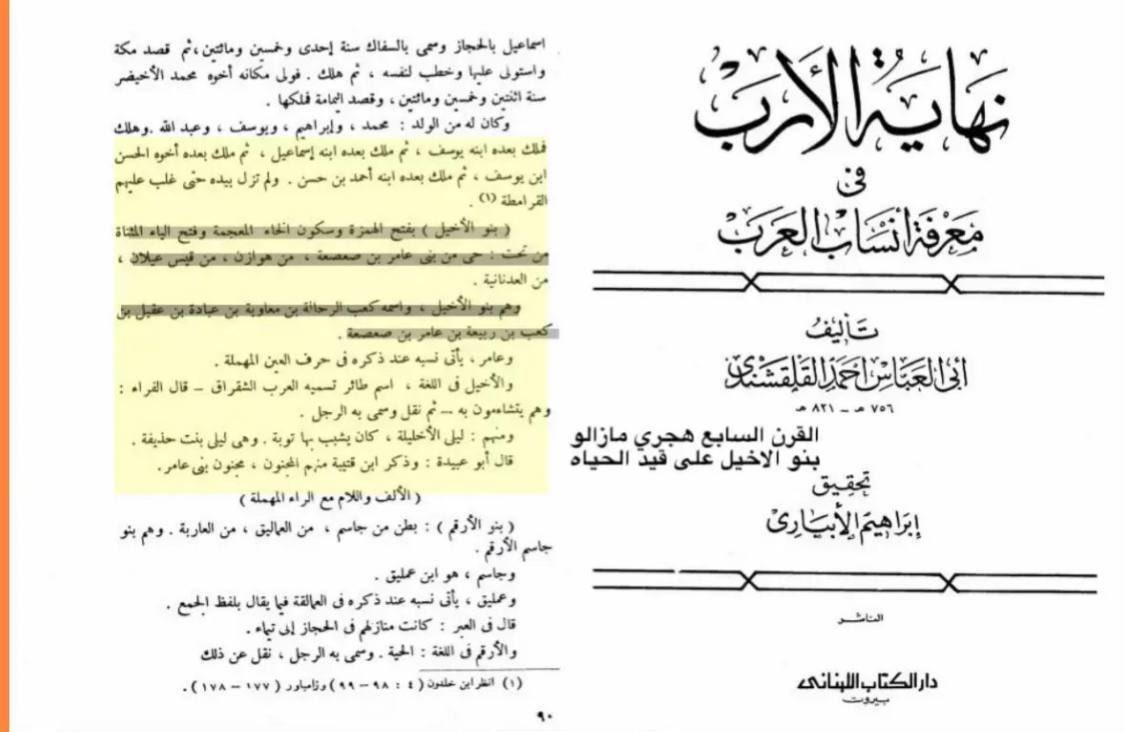 نهاية الأرب
فى
معرفة أنساب العرب
تأليف
أبى العباس أحمد القلقشندى
٧٥٦ هـ - ٨٢١ هـ
القرن السابع هجري مازالو
بنو الاخيل على قيد الحياه
تحقيق
إبراهيم الأبيارى
الناشر
دار الكتاب اللبنانى
بيروت
اسماعيل بالحجاز وسمى بالسفاك سنة إحدى وخمسين ومائتين ، ثم قصد مكة
واستولى عليها وخطب لنفسه ، ثم هلك . فولى مكانه أخوه محمد الأخيضر
سنة اثنتين وخمسين ومائتين ، وقصد اليمامة فملكها .
وكان له من الولد : محمد ، وإبراهيم ، ويوسف ، وعبد الله . وهلك
فملك بعده ابنه يوسف ، ثم ملك بعده ابنه إسماعيل ، ثم ملك بعده أخوه الحسن
ابن يوسف ، ثم ملك بعده ابنه أحمد بن حسن . ولم تزل بيده حتى غلب عليهم
القرامطة (١) .
( بنو الأخيل ) بفتح الهمزة وسكون الخاء المعجمة وفتح الياء المثناة
من تحت : حى من بنى عامر بن صعصعة ، من هوازن ، من قيس عيلان ،
من العدنانية .
وهم بنو الأخيل ، واسمه كعب الرحالة بن معاوية بن عبادة بن عقيل بن
كعب بن ربيعة بن عامر بن صعصعة .
وعامر ، يأتى نسبه عند ذكره فى حرف العين المهملة .
والأخيل فى اللغة ، اسم طائر تسميه العرب الشقراق – قال الفراء :
وهم يتشاءمون به – ثم نقل وسمى به الرجل .
ومنهم : ليلى الأخيلية ، كان يشبب بها توبة . وهى ليلى بنت حذيفة .
قال أبو عبيدة : وذكر ابن قتيبة منهم المجنون ، مجنون بنى عامر .
( الألف واللام مع الراء المهملة )
( بنو الأرقم ) : بطن من جاسم ، من العماليق ، من العاربة . وهم بنو
جاسم الأرقم .
وجاسم ، هو ابن عمليق .
وعمليق ، يأتى نسبه عند ذكره فى العمالقة فيما يقال بلفظ الجمع .
قال فى العبر : كانت منازلهم فى الحجاز إلى تيماء .
والأرقم فى اللغة : الحية . وسمى به الرجل ، نقل عن ذلك
(١) انظر ابن خلدون ( ٤ : ٩٨ – ٩٩ ) وزامباور ( ١٧٧ – ١٧٨ ) .
٩٠